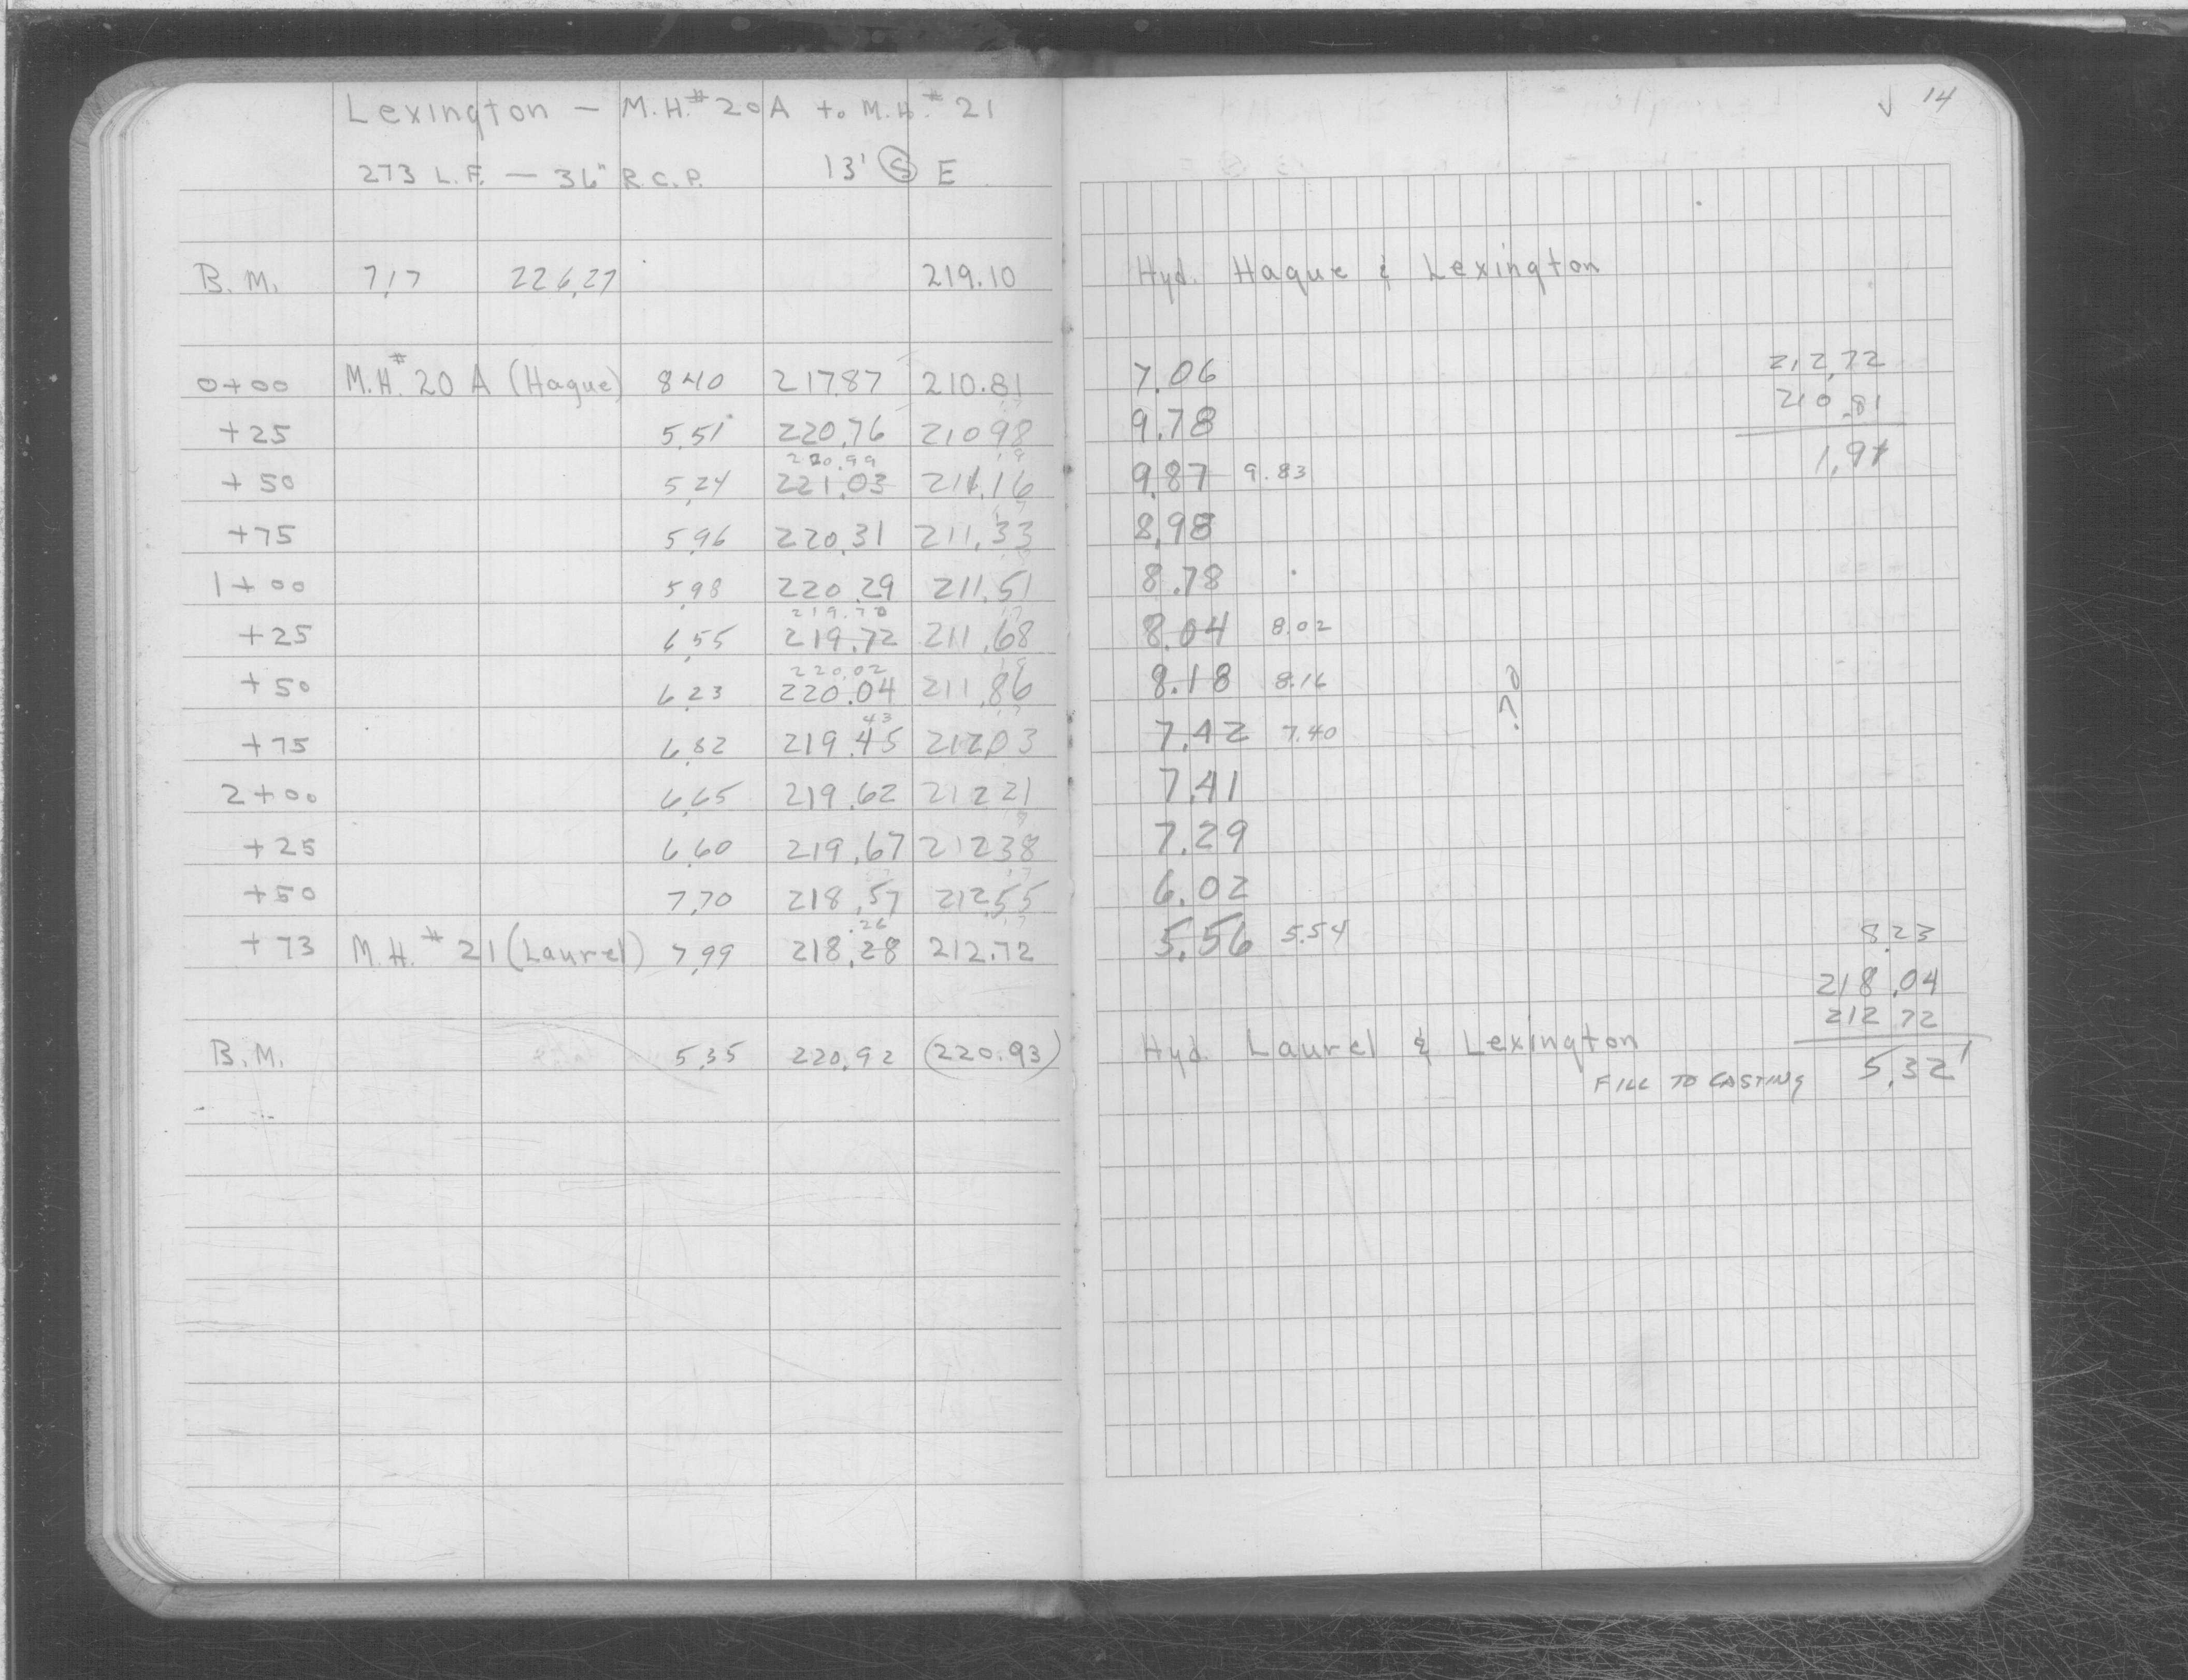 Lexington — M.H.# 20A to M.H.# 21
273 L.F. — 36" R.C.P. 13' Ⓢ E
B.M. 7.17 226.27 219.10
0+00 M.H.# 20 A (Hague) 8.40 217.87 210.81
+25 5.51 220.76 210.98
220.99
+50 5.24 221.03 211.16
+75 5.96 220.31 211.33
1+00 5.98 220.29 211.51
219.70
+25 6.55 219.72 211.68
220.02
+50 6.23 220.04 211.86
43
+75 6.82 219.45 212.03
2+00 6.65 219.62 212.21
+25 6.60 219.67 212.38
+50 7.70 218.57 212.55
.26
+73 M.H. # 21 (Laurel) 7.99 218.28 212.72
B.M. 5.35 220.92 (220.93)
14
Hyd. Hague & Lexington
7.06 212.72
9.78 210.81
9.87 9.83 1.91
8.98
8.78
8.04 8.02
8.18 8.16
.70
7.42 7.40
7.41
7.29
6.02
5.56 5.54 8.23
218.04
212.72
Hyd. Laurel & Lexington
FILL TO CASTING 5.32'